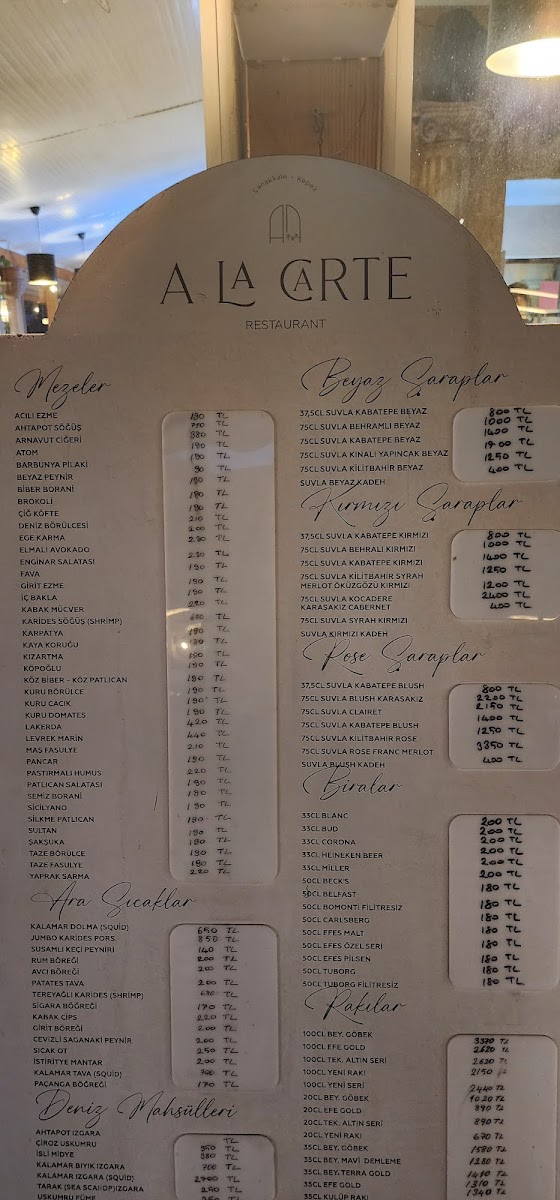 Çanakkale - Kepez
A LA CARTE
RESTAURANT
Mezeler
ACILI EZME 190 TL
AHTAPOT SÖĞÜŞ 750 TL
ARNAVUT CİĞERİ 380 TL
ATOM 190 TL
BARBUNYA PİLAKİ 190 TL
BEYAZ PEYNİR 90 TL
BİBER BORANİ 190 TL
BROKOLİ 190 TL
ÇİĞ KÖFTE 190 TL
DENİZ BÖRÜLCESİ 210 TL
EGE KARMA 200 TL
ELMALI AVOKADO TL
ENGİNAR SALATASI TL
FAVA 190 TL
GİRİT EZME 190 TL
İÇ BAKLA 190 TL
KABAK MÜCVER TL
KARİDES SÖĞÜŞ (SHRIMP) TL
KARPATYA 190 TL
KAYA KORUĞU TL
KIZARTMA 190 TL
KÖPOĞLU 190 TL
KÖZ BİBER - KÖZ PATLICAN 190 TL
KURU BÖRÜLCE 190 TL
KURU CACIK 190 TL
KURU DOMATES 190 TL
LAKERDA 420 TL
LEVREK MARİN 440 TL
MAŞ FASULYE 210 TL
PANCAR 190 TL
PASTIRMALI HUMUS 220 TL
PATLICAN SALATASI 190 TL
SEMİZ BORANİ 190 TL
SİCİLYANO 190 TL
SİLKME PATLICAN 190 TL
SULTAN 190 TL
ŞAKŞUKA 190 TL
TAZE BÖRÜLCE 190 TL
TAZE FASULYE 190 TL
YAPRAK SARMA 220 TL
Ara Sıcaklar
KALAMAR DOLMA (SQUID) 650 TL
JUMBO KARİDES PORS. 850 TL
SUSAMLI KEÇİ PEYNİRİ 140 TL
RUM BÖREĞİ 200 TL
AVCI BÖREĞİ 200 TL
PATATES TAVA 200 TL
TEREYAĞLI KARİDES (SHRIMP) TL
SİGARA BÖĞREĞİ 170 TL
KABAK ÇİPS 220 TL
GİRİT BÖREĞİ 200 TL
CEVİZLİ SAGANAKİ PEYNİR 200 TL
SICAK OT 250 TL
İSTİRİTYE MANTAR 200 TL
KALAMAR TAVA (SQUID) TL
PAÇANGA BÖĞREĞİ 170 TL
Deniz Mahsülleri
AHTAPOT IZGARA TL
ÇİROZ USKUMRU 350 TL
İSLİ MİDYE 380 TL
KALAMAR BIYIK IZGARA 700 TL
KALAMAR IZGARA (SQUID) TL
TARAK (SEA SCALLOP)IZGARA 250 TL
USKUMRU FÜME TL
Beyaz Şaraplar
37,5CL SUVLA KABATEPE BEYAZ 800 TL
75CL SUVLA BEHRAMLI BEYAZ 1000 TL
75CL SUVLA KABATEPE BEYAZ 1400 TL
75CL SUVLA KINALI YAPINCAK BEYAZ 1900 TL
75CL SUVLA KİLİTBAHİR BEYAZ 1250 TL
SUVLA BEYAZ KADEH 400 TL
Kırmızı Şaraplar
37,5CL SUVLA KABATEPE KIRMIZI 800 TL
75CL SUVLA BEHRALI KIRMIZI 1000 TL
75CL SUVLA KABATEPE KIRMIZI 1400 TL
75CL SUVLA KİLİTBAHİR SYRAH
MERLOT ÖKÜZGÖZÜ KIRMIZI 1250 TL
75CL SUVLA KOCADERE
KARASAKIZ CABERNET 1200 TL
75CL SUVLA SYRAH KIRMIZI 2400 TL
SUVLA KIRMIZI KADEH 400 TL
Rose Şaraplar
37,5CL SUVLA KABATEPE BLUSH 800 TL
75CL SUVLA BLUSH KARASAKIZ 2200 TL
75CL SUVLA CLAIRET 2150 TL
75CL SUVLA KABATEPE BLUSH 1400 TL
75CL SUVLA KİLİTBAHİR ROSE 1250 TL
75CL SUVLA ROSE FRANC MERLOT 3350 TL
SUVLA BLUSH KADEH 400 TL
Biralar
33CL BLANC 200 TL
33CL BUD 200 TL
33CL CORONA 200 TL
33CL HEINEKEN BEER 200 TL
33CL MİLLER 200 TL
50CL BECK'S 200 TL
50CL BELFAST 180 TL
50CL BOMONTİ FİLİTRESİZ 180 TL
50CL CARLSBERG 180 TL
50CL EFES MALT 180 TL
50CL EFES ÖZEL SERİ 180 TL
50CL EFES PİLSEN 180 TL
50CL TUBORG 180 TL
50CL TUBORG FİLİTRESİZ 180 TL
Rakılar
100CL BEY. GÖBEK 3370 TL
100CL EFE GOLD 2620 TL
100CL TEK. ALTIN SERİ 2620 TL
100CL YENİ RAKI 2150
100CL YENİ SERİ 2440 TL
20CL BEY. GÖBEK 1020 TL
20CL EFE GOLD 890 TL
20CL TEK. ALTIN SERİ 890 TL
20CL YENİ RAKI 670 TL
35CL BEY. GÖBEK 1580 TL
35CL BEY. MAVİ DEMLEME 1230 TL
35CL BEY. TERRA GOLD 1410 TL
35CL EFE GOLD 1310 TL
35CL KULÜP RAKI 1340 TL